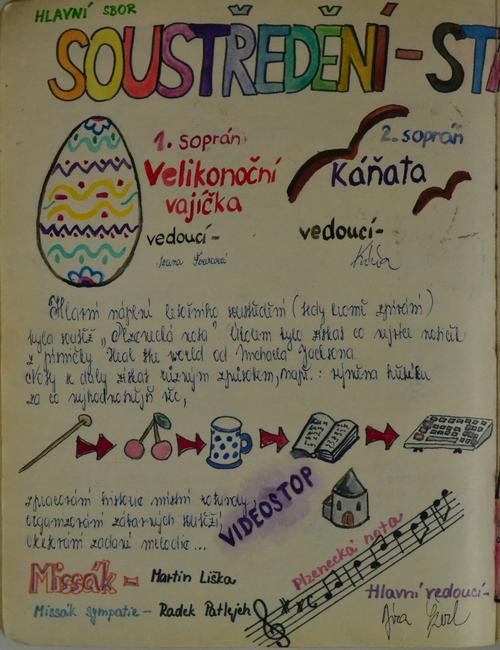 HLAVNÍ SBOR
SOUSTŘEDĚNÍ-ST
1. soprán
Velikonoční
vajíčka
vedoucí-
2. soprán
Káňata
vedoucí-
Hlavní náplní letošního soustředění (tedy kromě zpívání)
byla soutěž „Plzenecká nota". Úkolem bylo získat co nejvíce notiček
z písničky Heal the world od Michaela Jacksona.
Noty se daly získat různým způsobem, např.: výměna hřebíku
za co nejhodnotnější věc,
zpracování historie místní rotundy,
organizování zábavných soutěží,
VIDEOSTOP
Plzenecká nota
Missák - Martin Liška
Missák sympatie - Radek Patlejch
Hlavní vedoucí-
Jíra